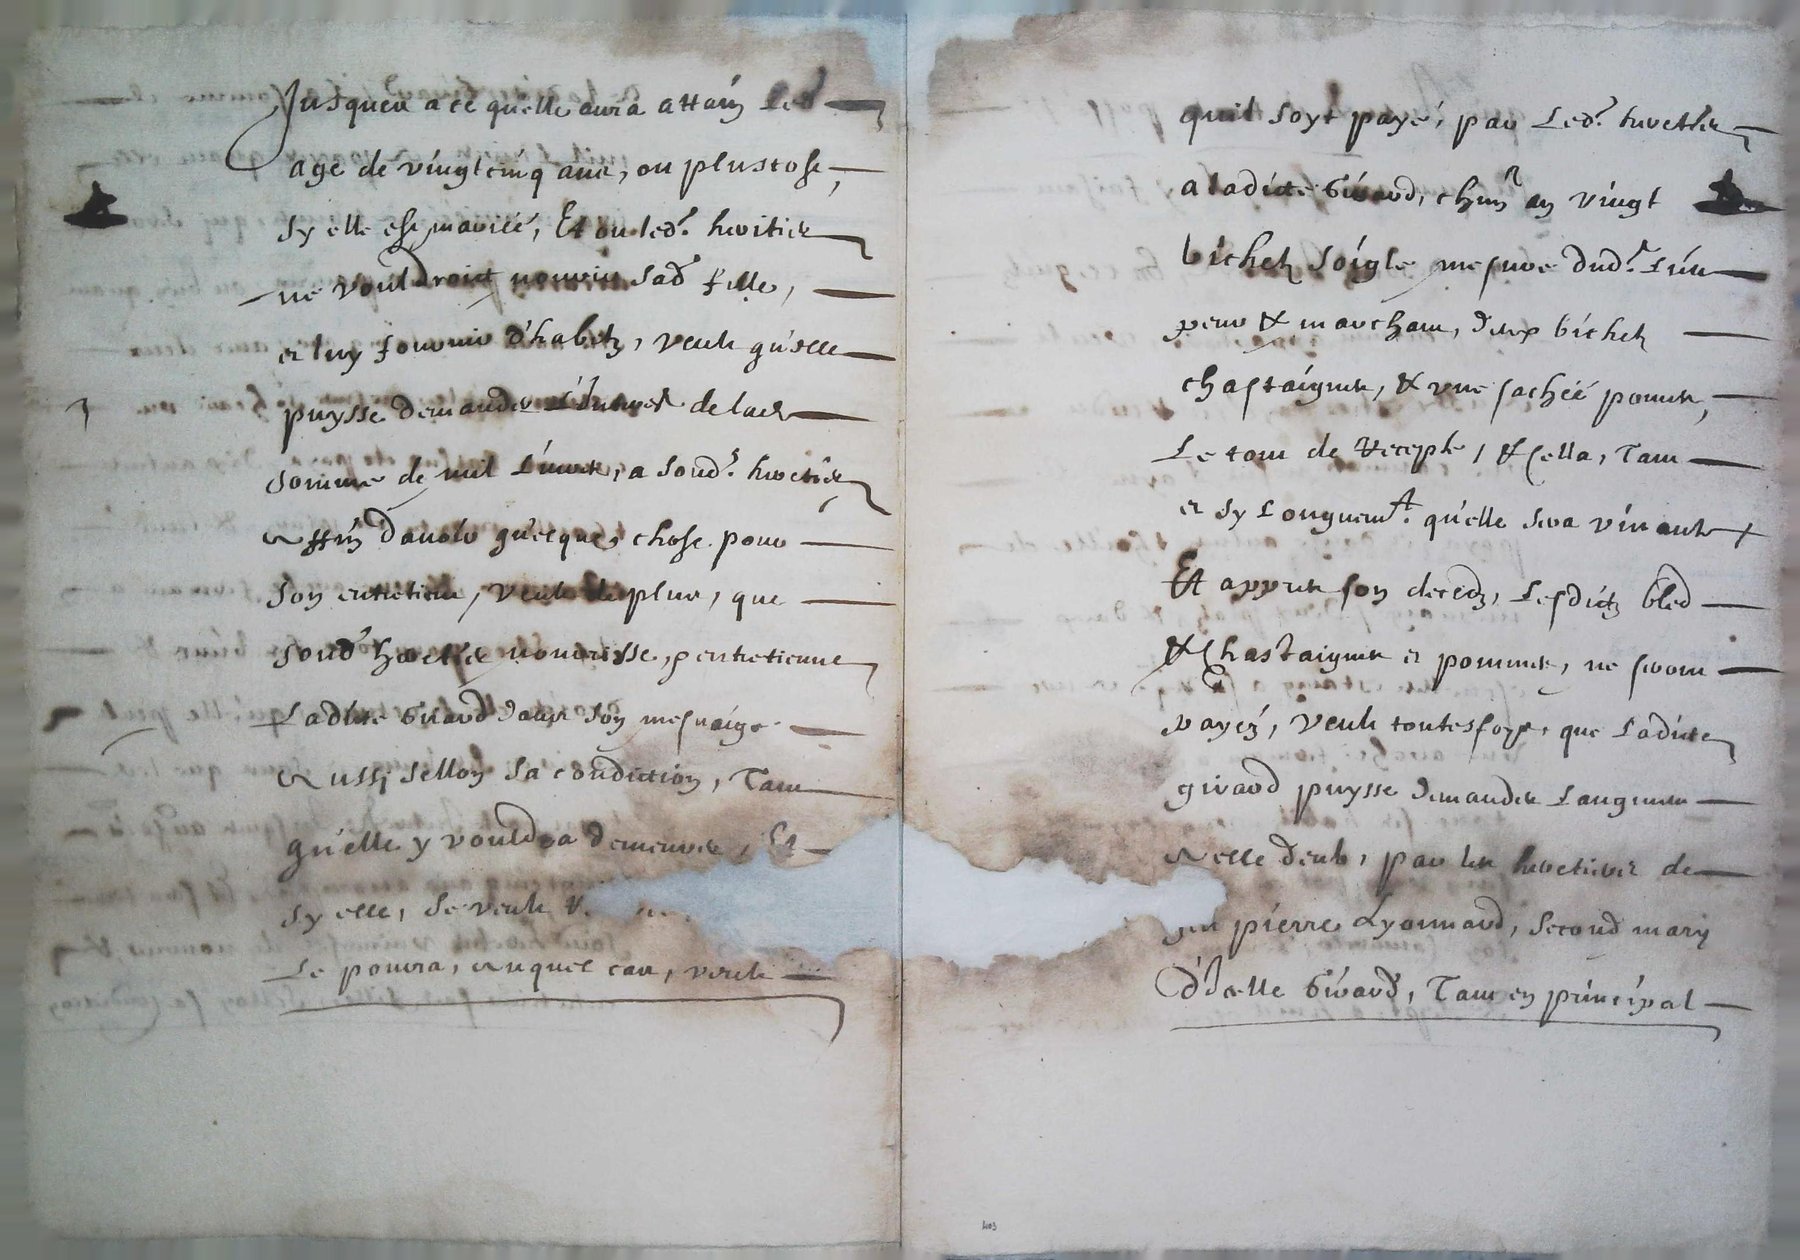 Jusques a ce quelle aura attain led
age de vingtcinq ans, ou plustost,
sy elle est mariée, Et ou led.t heritier
ne vouldroict nourir sad fille,
et luy fournir d'habitz, veult qu'elle
puysse demander l'interest de lad
somme de mil livres, a sond.t heritier
affin d'avoir quelque chose pour
son entretient, veult de plus, que
sond heretier nourrisse, & entretienne
Ladicte Girard dans son mesnaige
aussi sellon sa condiction, Tant
qu'elle y vouldra demeurer, Et
sy elle, se veult
Le pourra, auquel cas, veult
quil soyt payé, par Led.t heretier
a ladicte Girard, chun an vingt
bichetz soigle mesure dud.t
& marchant, deux bichetz
chastaignes, & une sachée pommes,
Le tout de recepte, & cella, Tant
et sy Longuem.t qu'elle sera vivante
Et appres son decedz, Lesdictz bled
& Chastaignes et pommes, ne seront
payéz, veult toutesfoys, que Ladicte
girard puysse demander Laugment
a elle deub, par les heretiers de
pierre Lyonnard, second mary
d'Icelle Girard, Tant en principal
403